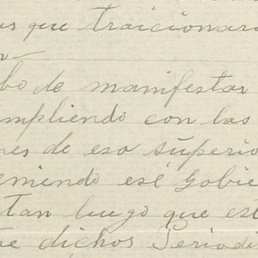 us que traicionara
r
bo de manifestar
umpliendo con las
nes de esa superio
eniendo ese Gobie
tan luego que est
ue dichos Periodi